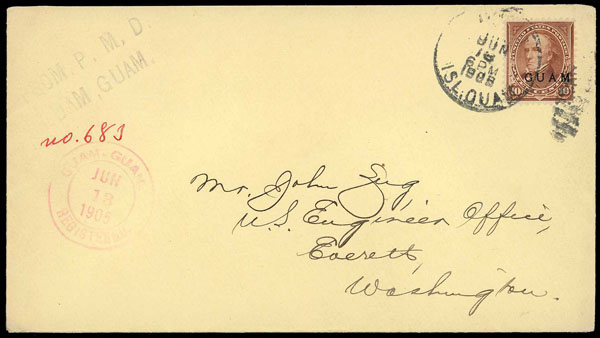 P. M. D.
GUAM.
no. 683
GUAM-GUAM
JUN
13
REGISTERED.
JUN
6PM
ISL. GUAM
GUAM
Mr. John Sug
U.S. Engineer Office,
Everett,
Washington.